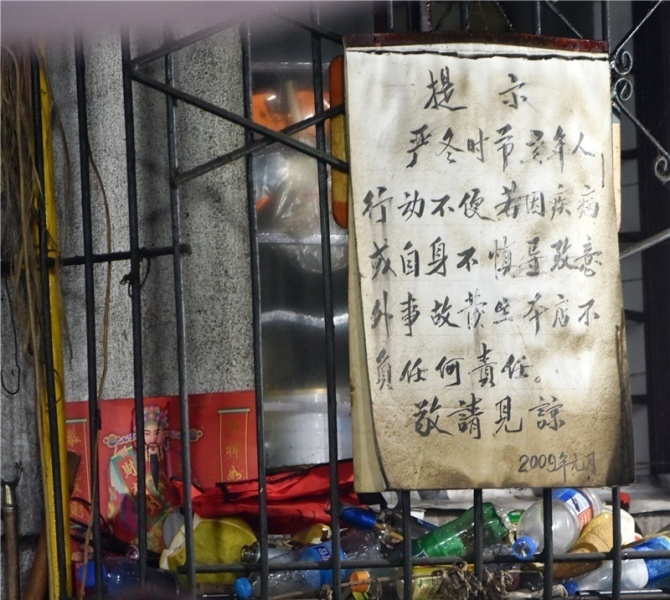 提示
严冬时节,老年人
行动不便若因疾病
或自身不慎导致意
外事故发生本店不
負任何責任。
敬請見諒
2009年元月